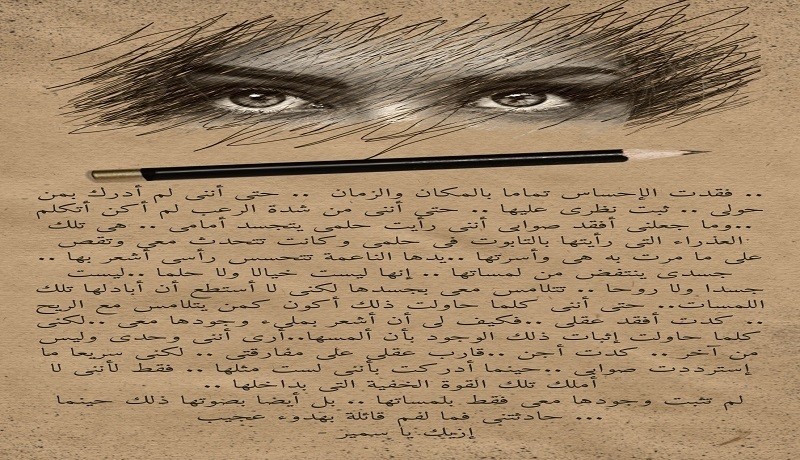 .. فقدت الإحساس تماما بالمكان والزمان .. حتى أننى لم أدرك بمن
حولى .. ثبت نظرى عليها .. حتي أننى من شدة الرعب لم أكن أتكلم
..وما جعلنى أفقد صوابى أننى رأيت حلمى يتجسد أمامى .. هى تلك
العذراء التى رأيتها بالتابوت فى حلمى وكانت تتحدث معي وتقص
على ما مرت به هى وأسرتها ..يدها الناعمة تتحسس رأسى أشعر بها ..
جسدى ينتفض من لمساتها .. إنها ليست خيالا ولا حلما ..ليست
جسدا ولا روحا .. تتلامس معي بجسدها لكنى لا أستطع أن أبادلها تلك
اللمسات.. حتى أننى كلما حاولت ذلك أكون كمن يتلامس مع الريح
.. كدت أفقد عقلى ..فكيف لى أن أشعر بمليء وجودها معى ..لكنى
كلما حاولت إثبات ذلك الوجود بأن ألمسها..أرى أننى وحدى وليس
من آخر .. كدت أجن ..قارب عقلي على مفارقتى .. لكنى سريعا ما
إسترددت صوابى ..حينما أدركت بأننى لست مثلها .. فقط لأننى لا
أملك تلك القوة الخفية التى بداخلها ..
لم تثبت وجودها معى فقط بلمساتها .. بل أيضا بصوتها ذلك حينما
... حادثتنى فما لفم قائلة بهدوء عجيب
- إزيك يا سمير